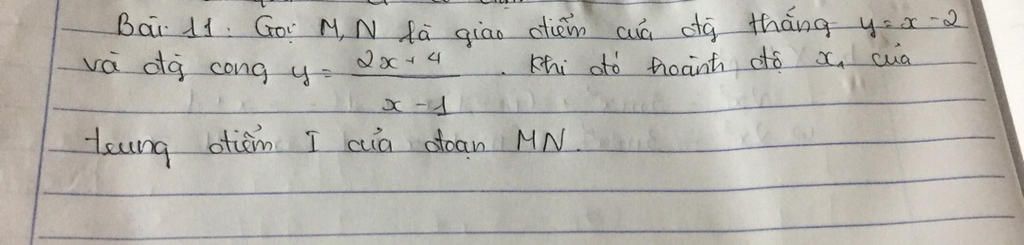 Bài 11. Gọi M, N là giao điểm của đg thẳng y = x - 2
và đg cong y = \frac{2x+4}{x-1}. Khi đó hoành độ x₁ của
trung điểm I của đoạn MN.